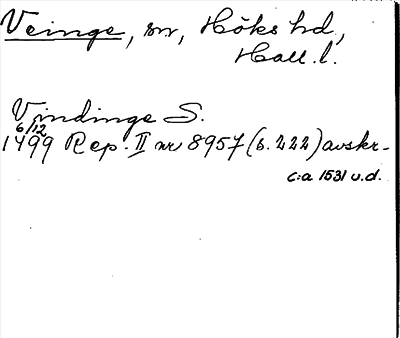 Veinge, sn, Höks hd,
Hall. l.
Vindinge S.
6/12
1499 Rep. II nr 8957 (s. 222) avskr.
c:a 1531 u.d.